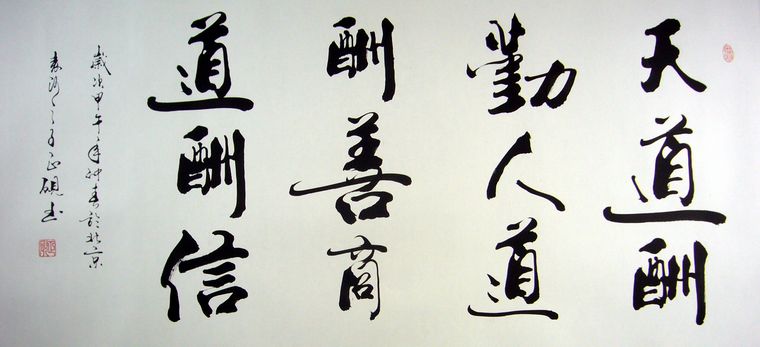 天道酬
勤人道
酬善商
道酬信
歲次甲午年仲春於北京
正硯书